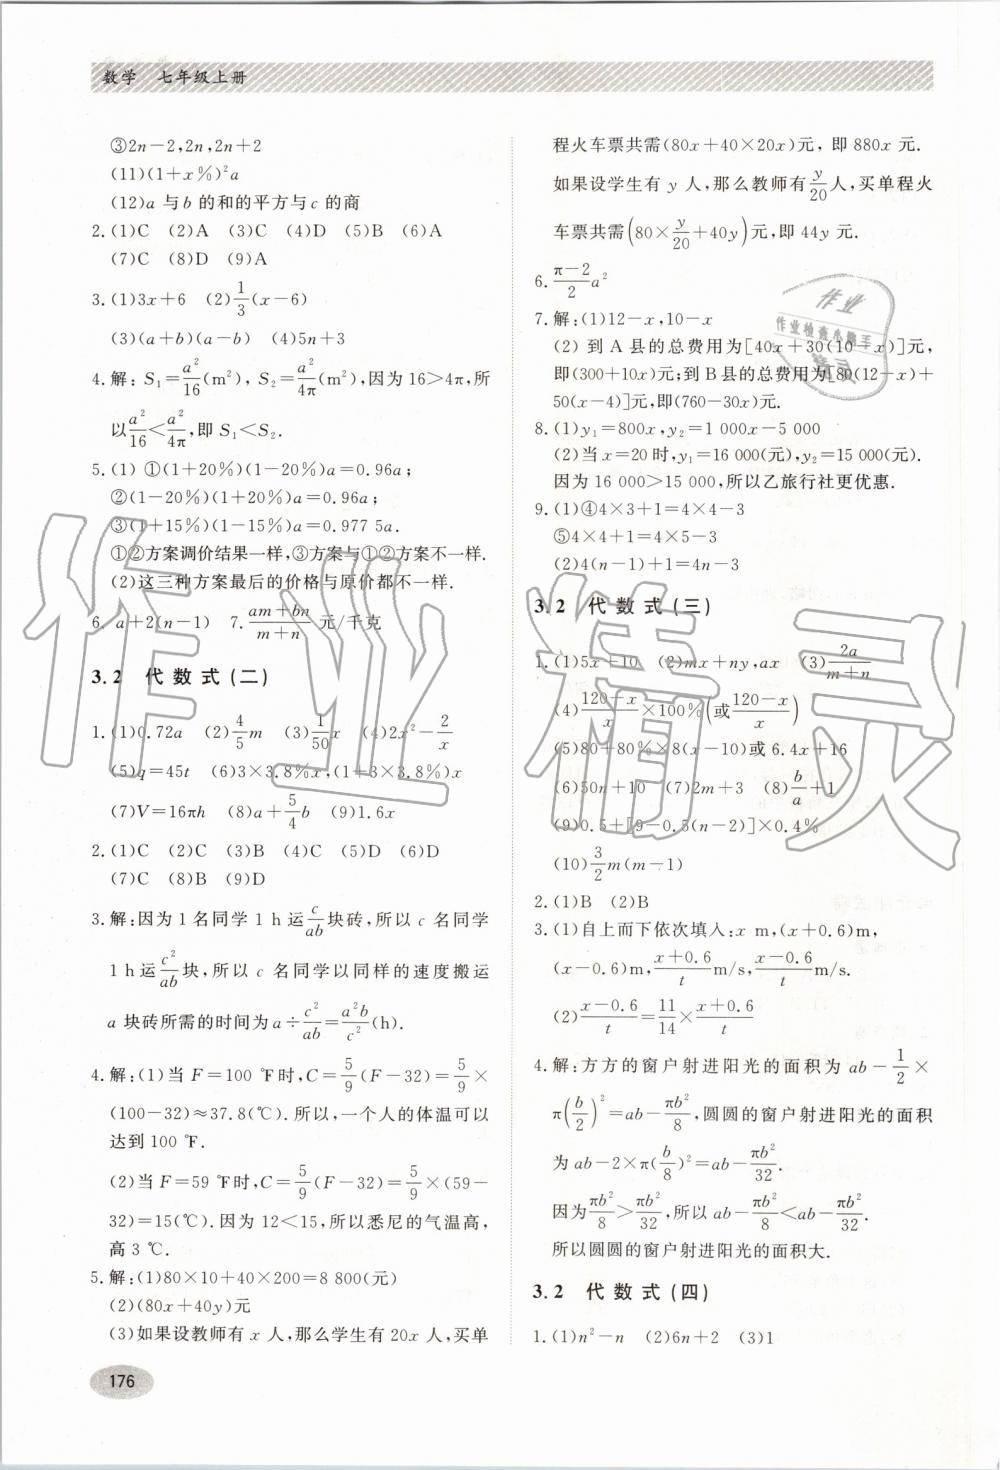 数学 七年级上册
③2n－2,2n,2n＋2
(11)(1＋x％)²a
(12)a 与 b 的和的平方与 c 的商
2.(1)C (2)A (3)C (4)D (5)B (6)A
(7)C (8)D (9)A
3.(1)3x＋6 (2)1/3(x－6)
(3)(a＋b)(a－b) (4)5n＋3
4.解：S₁＝a²/16(m²)，S₂＝a²/4π(m²),因为 16＞4π,所
以a²/16＜a²/4π,即 S₁＜S₂.
5.(1) ①(1＋20％)(1－20％)a＝0.96a；
②(1－20％)(1＋20％)a＝0.96a；
③(1＋15％)(1－15％)a＝0.977 5a.
①②方案调价结果一样,③方案与①②方案不一样.
(2)这三种方案最后的价格与原价都不一样.
6. a＋2(n－1) 7.(am＋bn)/(m＋n) 元/千克
3.2 代数式(二)
1.(1)0.72a (2)4/5m (3)1/50x (4)2x²－2/x
(5)q＝45t (6)3×3.8％x,(1＋3×3.8％)x
(7)V＝16πh (8)a＋5/4b (9)1.6x
2.(1)C (2)C (3)B (4)C (5)D (6)D
(7)C (8)B (9)C
3.解:因为 1 名同学 1 h 运c/ab块砖,所以 c 名同学
1 h 运c²/ab块,所以 c 名同学以同样的速度搬运
a 块砖所需的时间为 a÷c²/ab＝a²b/c²(h).
4.解:(1)当 F＝100 ℉时,C＝5/9(F－32)＝5/9×
(100－32)≈37.8(℃).所以,一个人的体温可以
达到 100 ℉.
(2)当 F＝59 ℉时,C＝5/9(F－32)＝5/9×(59－
32)＝15(℃).因为 12＜15,所以悉尼的气温高,
高 3 ℃.
5.解:(1)80×10＋40×200＝8 800(元)
(2)(80x＋40y)元
(3)如果设教师有 x 人,那么学生有 20x 人,买单
176
程火车票共需(80x＋40×20x)元，即 880x 元.
如果设学生有 y 人,那么教师有y/20人,买单程火
车票共需(80×y/20＋40y)元,即 44y 元.
6.(π－2)/2 a²
7.解:(1)12－x,10－x
(2) 到 A 县的总费用为[40x＋30(10－x)]元,
即(300＋10x)元;到 B 县的总费用为[80(12－x)＋
50(x－4)]元,即(760－30x)元.
8.(1)y₁＝800x,y₂＝1 000x－5 000
(2)当 x＝20 时,y₁＝16 000(元),y₂＝15 000(元).
因为 16 000＞15 000,所以乙旅行社更优惠.
9.(1)④4×3＋1＝4×4－3
⑤4×4＋1＝4×5－3
(2)4(n－1)＋1＝4n－3
3.2 代数式(三)
1.(1)5x＋10 (2)mx＋ny,ax (3)2a/(m＋n)
(4)(120－x)/x×100％(或(120－x)/x)
(5)80＋80％×8(x－10)或 6.4x＋16
(6)50n＋10 (7)2m＋3 (8)b/a＋1
(9)0.5＋[9－0.5(n－2)]×0.4％
(10)3/2m(m－1)
2.(1)B (2)B
3.(1)自上而下依次填入:x m,(x＋0.6)m,
(x－0.6)m,(x＋0.6)/t m/s,(x－0.6)/t m/s.
(2)(x－0.6)/t＝11/14×(x＋0.6)/t
4.解:方方的窗户射进阳光的面积为 ab－1/2×
π(b/2)²＝ab－πb²/8,圆圆的窗户射进阳光的面积
为 ab－2×π(b/8)²＝ab－πb²/32.
因为πb²/8＞πb²/32,所以 ab－πb²/8＜ab－πb²/32.
所以圆圆的窗户射进阳光的面积大.
3.2 代数式(四)
1.(1)n²－n (2)6n＋2 (3)1
作业精灵
作业
作业检查小帮手
精灵